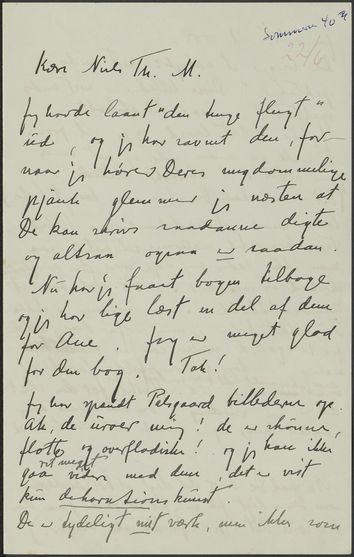 Sommeren 40
22/6
Kære Niels Th. M.
Jeg havde laant "den tunge flugt"
ud, og jeg har savnet den, for-
naar jeg hører Deres ungdommelige
pjank glemmer jeg næsten at
De kan skrive saadanne digte
og altsaa ogsaa er saadan.
Nu har jeg faaet bogen tilbage
og jeg har lige læst en del af dem
for Ane. Jeg er meget glad
for den bog. Tak!
Jeg har spændt Palsgaard billederne op.
Ak, de morer mig! de er skønne,
flotte og overflødiske! og jeg kan ikke
gaa ret meget videre med dem, det er vist
kun dekorationskunst.
De er tydeligt mit værk, men ikke som